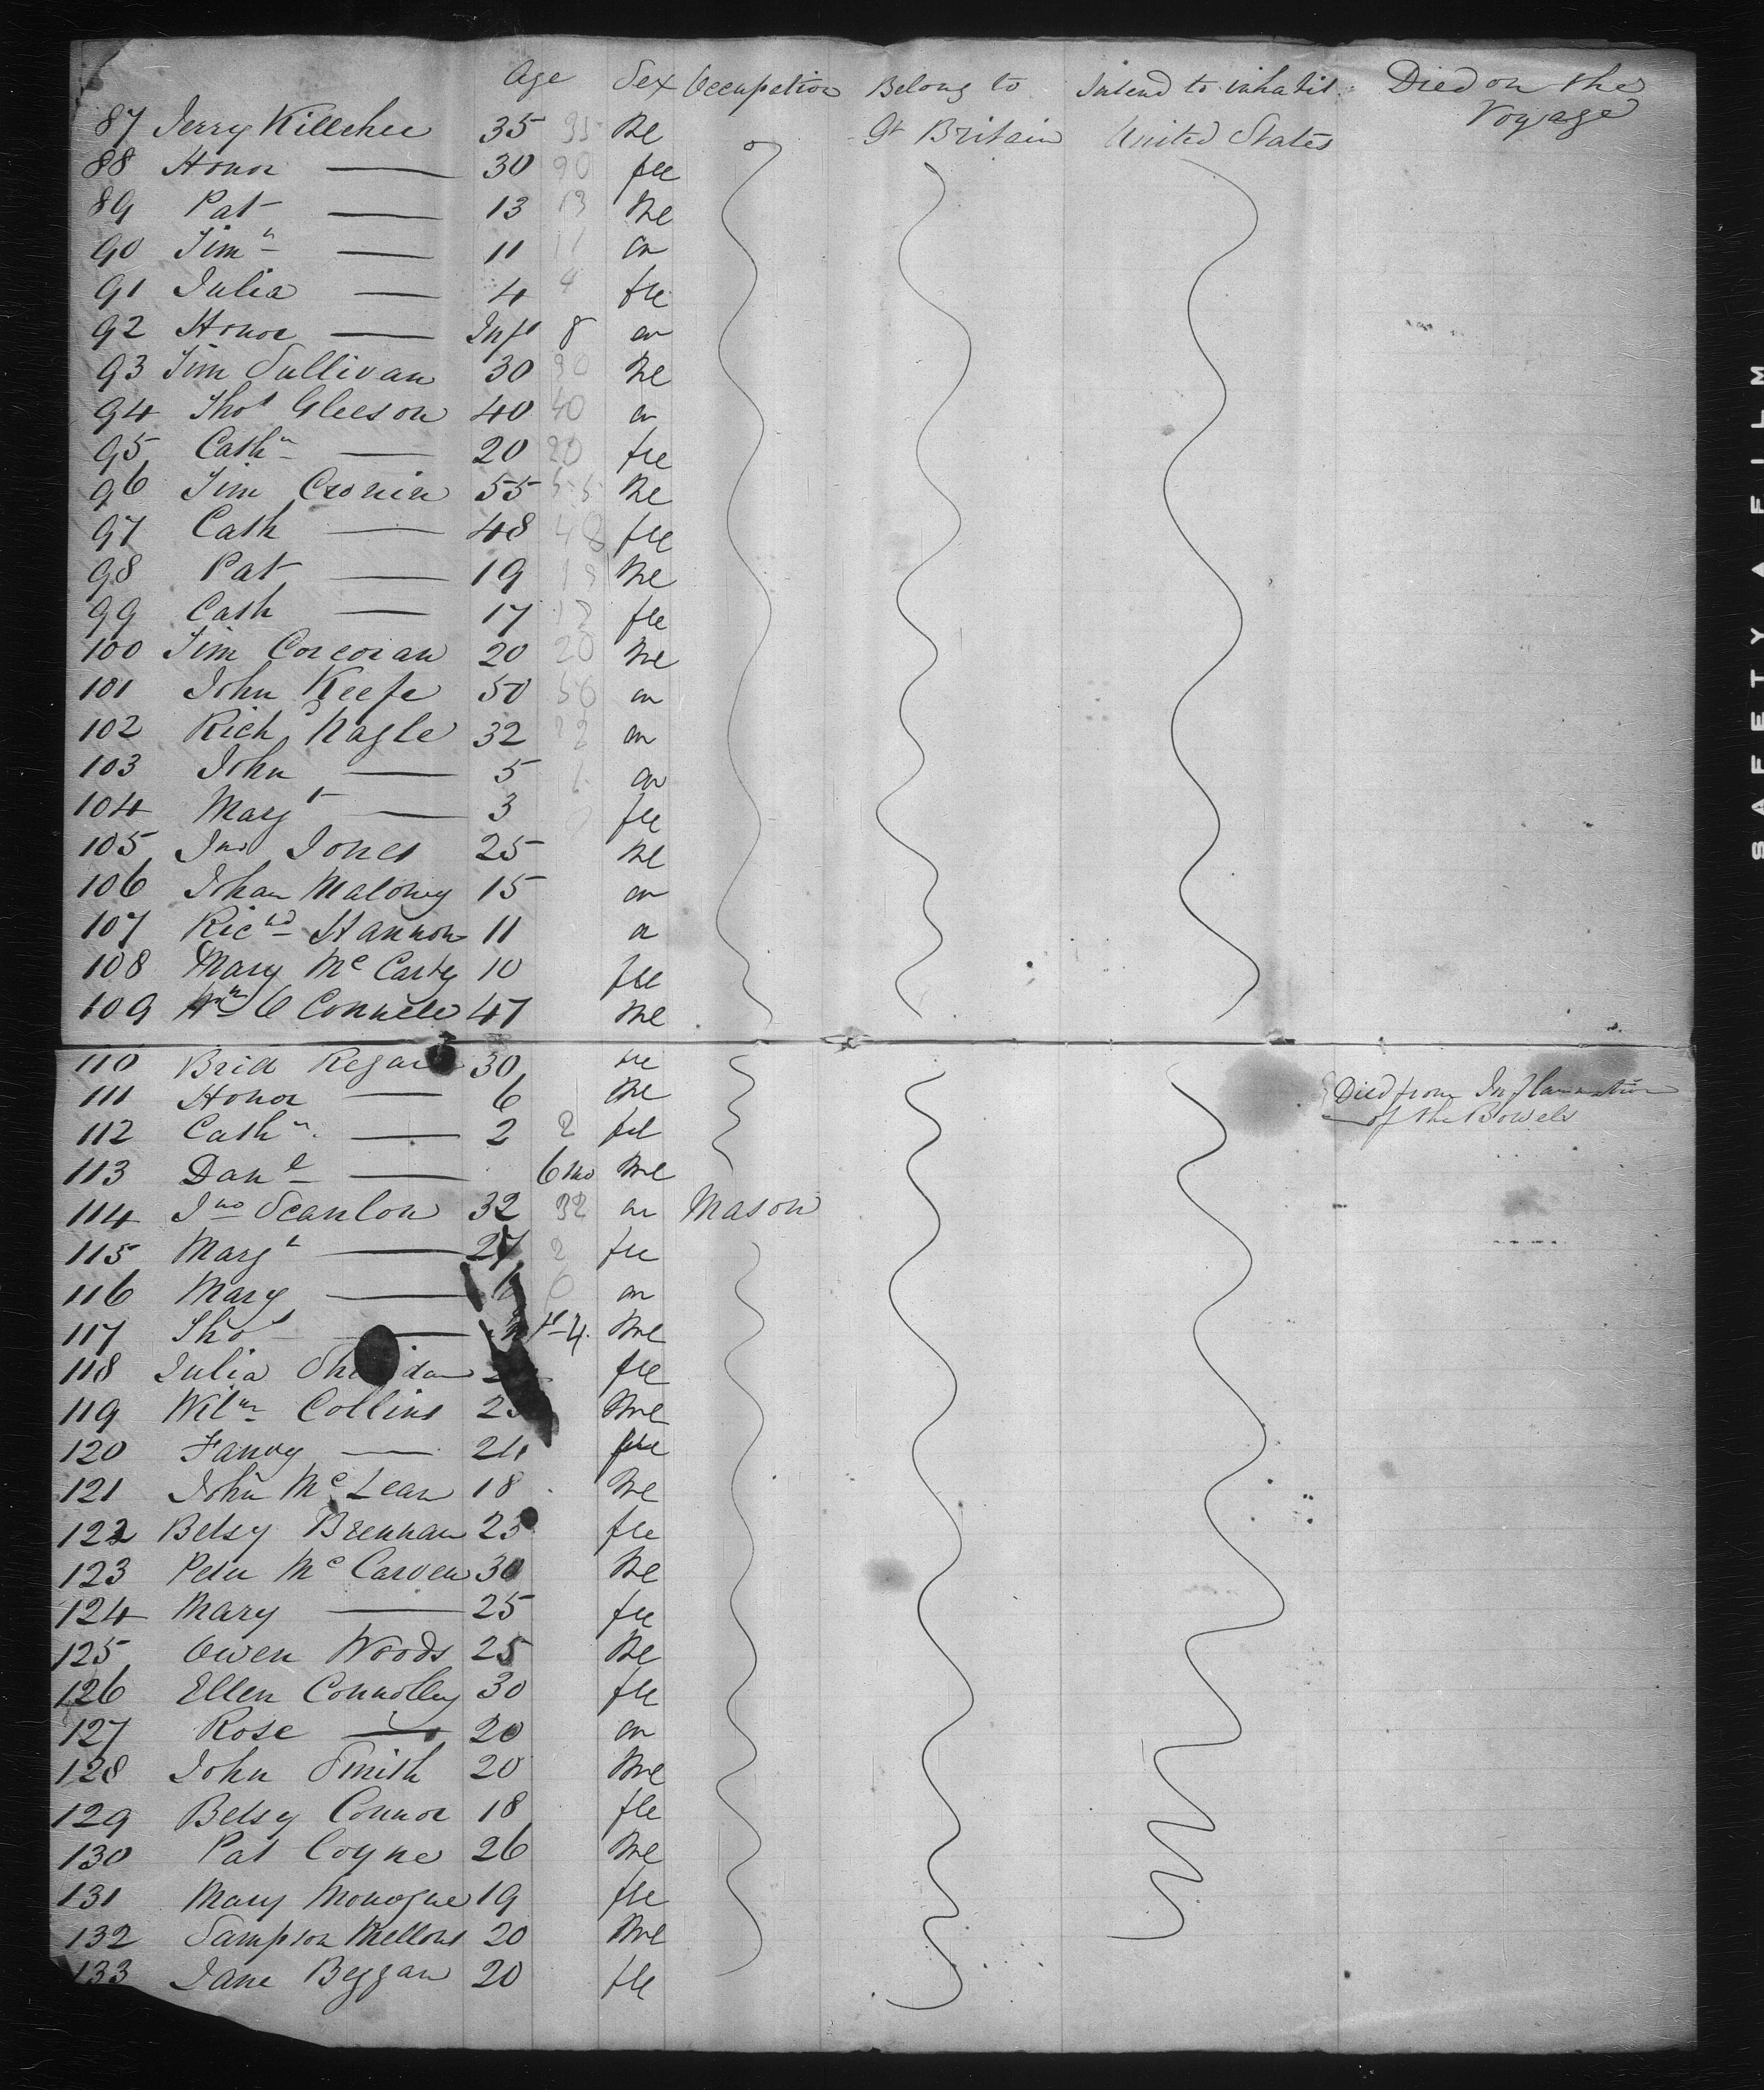 Age Sex Occupation Belong to Intend to inhabit Died on the Voyage
87 Jerry Killehee 35 35 Me Gt Britain United States
88 Honor — 30 30 fle
89 Pat — 13 13 Me
90 Tim — 11 11 on
91 Julia — 4 4 fle
92 Honor — Inft 8 on
93 Tim Sullivan 30 30 Me
94 Thos Gleeson 40 40 on
95 Cathn — 20 20 fle
96 Tim Cronin 55 55 Me
97 Cath — 48 48 fle
98 Pat — 19 19 Me
99 Cath — 17 fle
100 Tim Corcoran 20 20 Me
101 John Keefe 50 50 on
102 Richd Nagle 32 on
103 John — 5 on
104 Margt — 3 fle
105 Jno Jones 25 Me
106 Johan Maloney 15 on
107 Ricnd Hannon 11 on
108 Mary McCarty 10 fle
109 Wm O Connell 47 Me
110 Brid Regan 30 fle
111 Honor — 6 Me Died from Inflamation of the Bowels
112 Cathn — 2 2 fle
113 Danl — 6 mo Me
114 Jno Scanlon 32 32 on Mason
115 Margt — 27 2 fle
116 Mary — 6 on
117 Thos — 4 Me
118 Julia fle
119 Wilm Collins Me
120 Fanny — 24 fle
121 John McLean 18 Me
122 Betsy Brennan 23 fle
123 Peter McCarven 30 Me
124 Mary — 25 fle
125 Owen Woods 25 Me
126 Ellen Connolly 30 fle
127 Rose — 20 on
128 John Smith 20 Me
129 Betsy Connor 18 fle
130 Pat Coyne 26 Me
131 Mary Monogue 19 fle
132 Sampson Mellons 20 Me
133 Jane Beggan 20 fle
SAFETY FILM